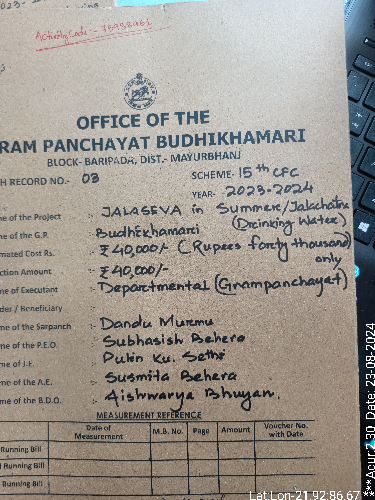 2023-
Activity Code :- 75938962
OFFICE OF THE
RAM PANCHAYAT BUDHIKHAMARI
BLOCK- BARIPADA, DIST.- MAYURBHANJ
H RECORD NO.- 03
SCHEME- 15th CFC
YEAR- 2023-2024
me of the Project :- JALASEVA in Summer/Jalachatra
(Drinking Water)
me of the G.P. :- Budhikhamari
mated Cost Rs. :- ₹40,000/- (Rupees forty thousand)
only
ction Amount :- ₹40,000/-
me of Executant :- Departmental (Grampanchayat)
der / Beneficiary :-
me of the Sarpanch :- Dandu Murmu
me of the P.E.O. :- Subhasish Behera
me of J.E. :- Pulin Ku. Sethi
me of the A.E. :- Susmita Behera
me of the B.D.O. :- Aishwarya Bhuyan.
MEASUREMENT REFERENCE
Date of Measurement M.B. No. Page Amount Voucher No. with Date
Running Bill
Running Bill
Running Bill
Lat:Lon-21.92:86.67
***Acur:2.30 Date: 23-08-2024